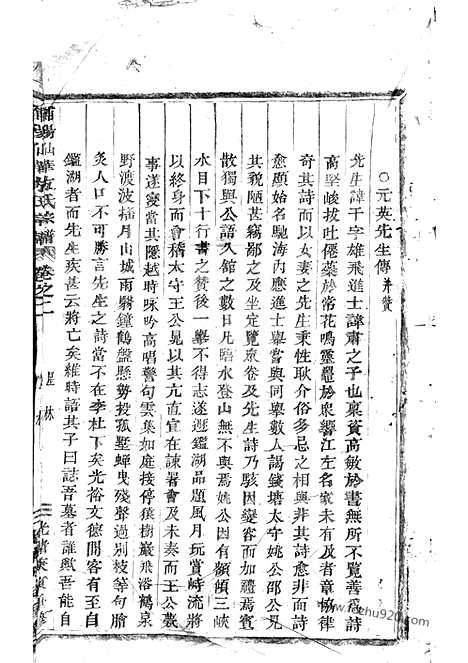 ○元英先生傳并贊
先生諱干字雄飛進士諱肅之子也稟質高敏於書無所不覽善爲詩
高堅峻拔吐僊蘂於常花鳴靈鼉於衆響江左名家未有及者章協律
奇其詩而以女妻之先生秉性耿介俗多忌之相與非其詩愈非而詩
愈顯始名馳海內應進士舉嘗與同舉數人謁錢塘太守姚公郃公見
其貌陋甚竊鄙之及坐定覽衆卷及先生詩乃駭因變容而加禮焉賓
散獨與公語久館之數日凡臨水登山無不與焉姚公因有領領三峽
水目下十行書之贊後一舉不得志遂遯鑑湖品題風月玩賞峙流將
以終身而會稽太守王公見以其亢直宜在諫署會及未奏而王公薨
事遂變當其隱越時咏吟高唱警句雲集如庭接停猿樹巖飛浴鶴泉
野渡波搖月山城雨翳鐘鶴盤懸勢投孤墅蟬曳殘聲過別枝等句膾
炙人口不可勝言先生之詩當不在李杜下矣光裕文德間客有至自
鑑湖者而先生疾甚云將亡矣雖時語其子曰誌吾墓者誰歟吾能自
仙華方氏宗譜 卷之二